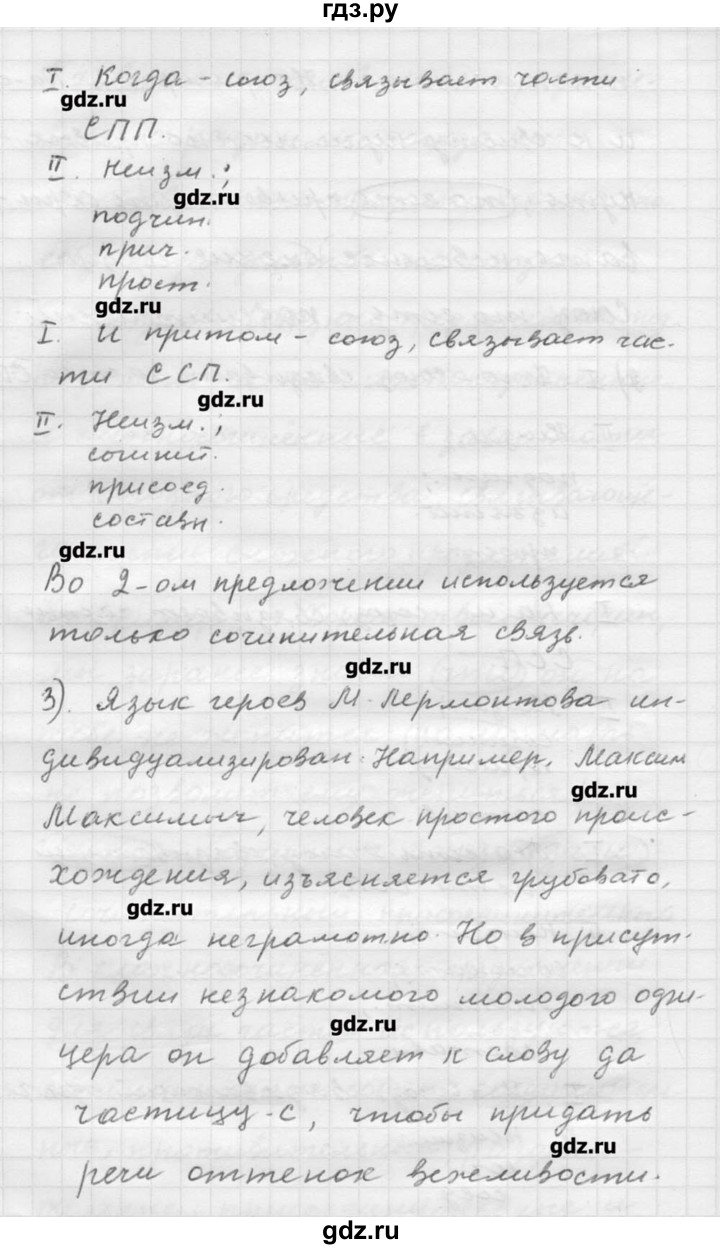 гдз.ру
I. Когда - союз, связывает части
gdz.ru
СПП.
II. Неизм.;
gdz.ru
подчин.
прич.
прост.
gdz.ru
I. И притом - союз, связывает час-
ти ССП.
gdz.ru
II. Неизм.;
сочинит.
присоед.
составн.
gdz.ru
Во 2-ом предложении используется
только сочинительная связь.
gdz.ru
3). Язык героев М. Лермонтова ин-
дивидуализирован. Например, Максим
gdz.ru
Максимыч, человек простого проис-
хождения, изъясняется грубовато,
gdz.ru
иногда неграмотно. Но в присут-
ствии незнакомого молодого офи-
gdz.ru
цера он добавляет к слову да
частицу -с, чтобы придать
gdz.ru
речи оттенок вежливости.
gdz.ru